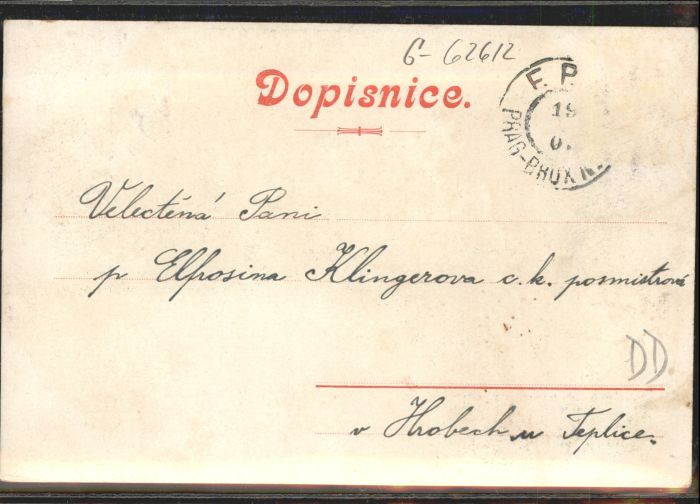 G- 62612
Dopisnice.
F. P.
19
0.
PRAG-BRUX N.
Velectěná Paní
p Elfrosina Klingerova c. k. posmistrová
DD
v Hrobech u Teplice.